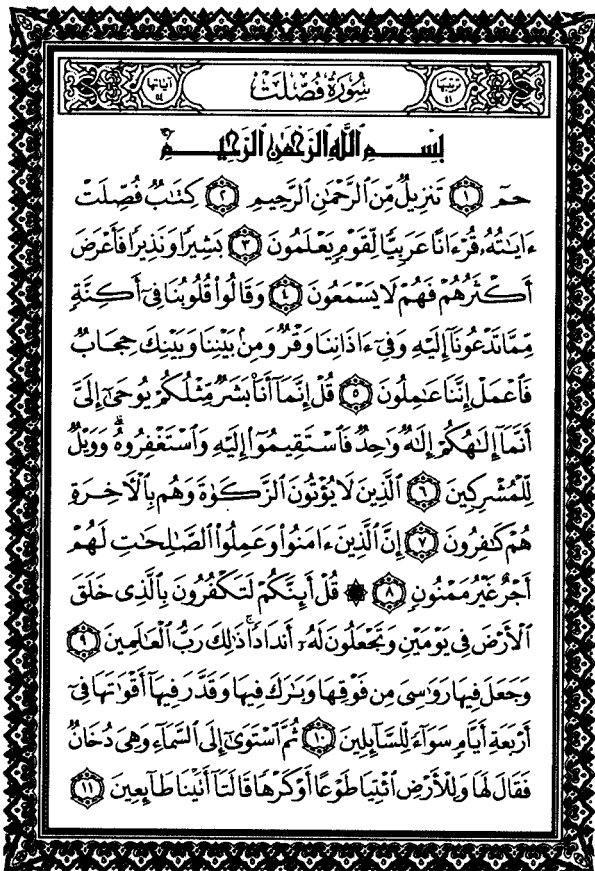 ترتيبها ٤١ سُورَةُ فُصِّلَتْ آياتها ٥٤
بِسْمِ ٱللَّهِ ٱلرَّحْمَٰنِ ٱلرَّحِيمِ
حمٓ ۝١ تَنزِيلٌ مِّنَ ٱلرَّحْمَٰنِ ٱلرَّحِيمِ ۝٢ كِتَٰبٌ فُصِّلَتْ
ءَايَٰتُهُۥ قُرْءَانًا عَرَبِيًّا لِّقَوْمٍ يَعْلَمُونَ ۝٣ بَشِيرًا وَنَذِيرًا فَأَعْرَضَ
أَكْثَرُهُمْ فَهُمْ لَا يَسْمَعُونَ ۝٤ وَقَالُوا۟ قُلُوبُنَا فِىٓ أَكِنَّةٍ
مِّمَّا تَدْعُونَآ إِلَيْهِ وَفِىٓ ءَاذَانِنَا وَقْرٌ وَمِنۢ بَيْنِنَا وَبَيْنِكَ حِجَابٌ
فَٱعْمَلْ إِنَّنَا عَٰمِلُونَ ۝٥ قُلْ إِنَّمَآ أَنَا۠ بَشَرٌ مِّثْلُكُمْ يُوحَىٰٓ إِلَىَّ
أَنَّمَآ إِلَٰهُكُمْ إِلَٰهٌ وَٰحِدٌ فَٱسْتَقِيمُوٓا۟ إِلَيْهِ وَٱسْتَغْفِرُوهُ ۗ وَوَيْلٌ
لِّلْمُشْرِكِينَ ۝٦ ٱلَّذِينَ لَا يُؤْتُونَ ٱلزَّكَوٰةَ وَهُم بِٱلْءَاخِرَةِ
هُمْ كَٰفِرُونَ ۝٧ إِنَّ ٱلَّذِينَ ءَامَنُوا۟ وَعَمِلُوا۟ ٱلصَّٰلِحَٰتِ لَهُمْ
أَجْرٌ غَيْرُ مَمْنُونٍ ۝٨ ۞ قُلْ أَئِنَّكُمْ لَتَكْفُرُونَ بِٱلَّذِى خَلَقَ
ٱلْأَرْضَ فِى يَوْمَيْنِ وَتَجْعَلُونَ لَهُۥٓ أَندَادًا ۚ ذَٰلِكَ رَبُّ ٱلْعَٰلَمِينَ ۝٩
وَجَعَلَ فِيهَا رَوَٰسِىَ مِن فَوْقِهَا وَبَٰرَكَ فِيهَا وَقَدَّرَ فِيهَآ أَقْوَٰتَهَا فِىٓ
أَرْبَعَةِ أَيَّامٍ سَوَآءً لِّلسَّآئِلِينَ ۝١٠ ثُمَّ ٱسْتَوَىٰٓ إِلَى ٱلسَّمَآءِ وَهِىَ دُخَانٌ
فَقَالَ لَهَا وَلِلْأَرْضِ ٱئْتِيَا طَوْعًا أَوْ كَرْهًا قَالَتَآ أَتَيْنَا طَآئِعِينَ ۝١١